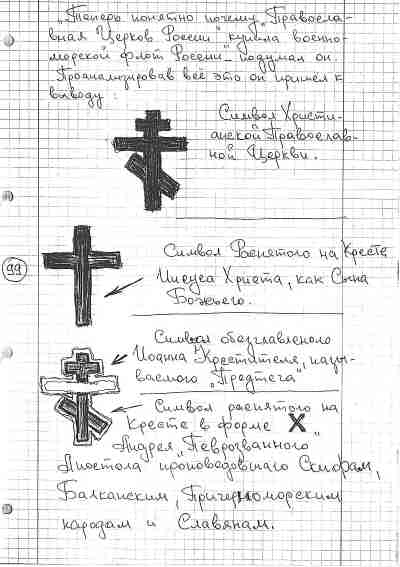 „Теперь понятно почему „Правосла-
вная Церков России" купила военно-
морской флот России" подумал он.
Проанализировав всё это он пришёл к
выводу:
Символ Христи-
анской Православ-
ной Церкви.
99
Символ Распятого на Кресте
Иисуса Христа, как Сына
Божьего.
Символ обезглавленого
Иоанна Крестителя, назы-
ваемого „Предтеча"
Символ распятого на
Кресте в форме X
Андрея „Певрозванного"
Апостола проповедовшего Скифам,
Балканским, Причерноморским
народам и Славянам.